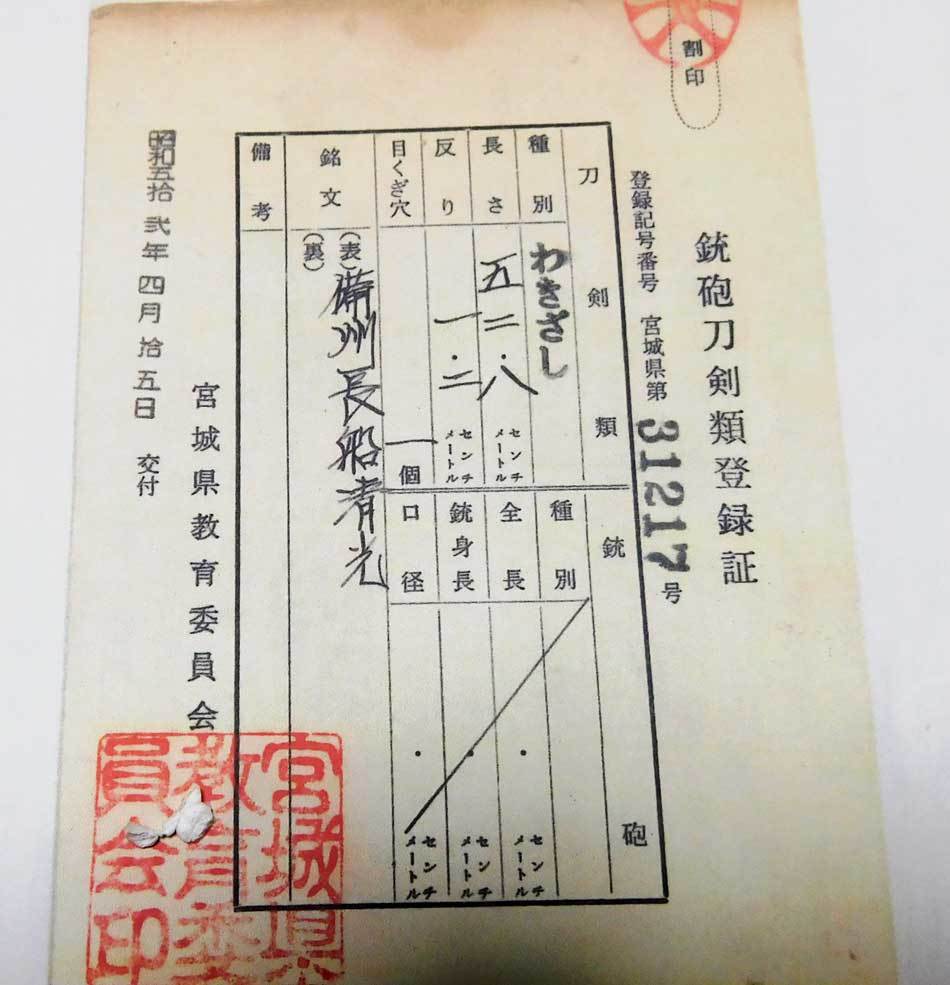 割印
銃砲刀剣類登録証
登録記号番号 宮城県第31217号
刀剣類
種別 わきざし
長さ 五二・八 センチメートル
反り 一・二 センチメートル
目くぎ穴 一個
銘文 (表)備州長船清光
(裏)
備考
銃砲
種別
全長 ・ センチメートル
銃身長 ・ センチメートル
口径 ・ センチメートル
昭和五拾弐年四月拾五日 交付
宮城県教育委員会
宮城県教育委員会印